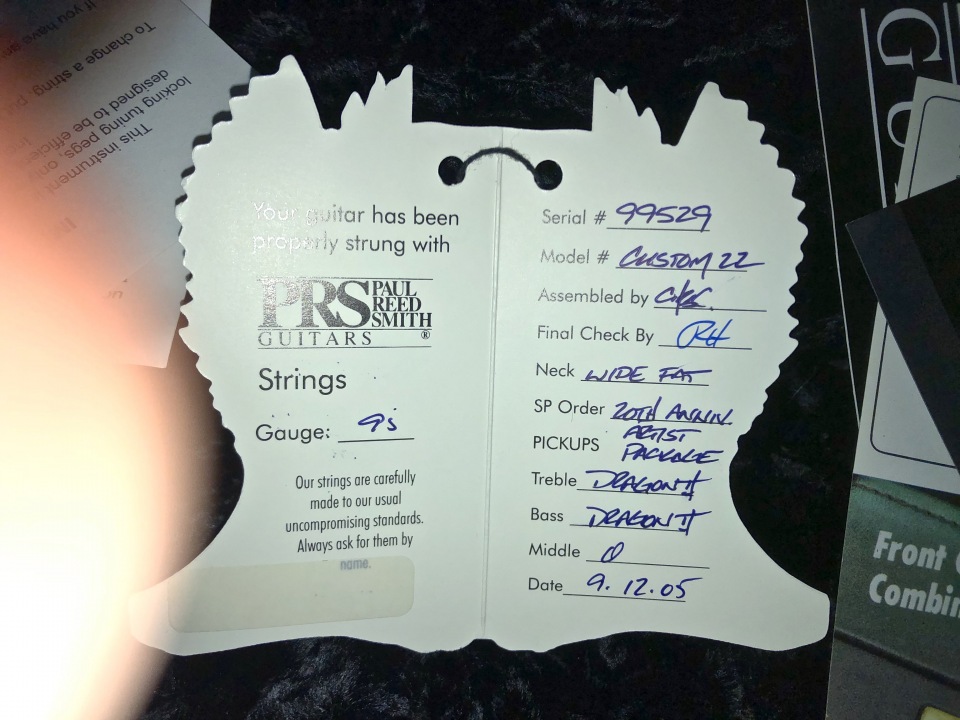 If you have an
To change a string, pu
designed to be efficien
locking tuning pegs, only
This instrument
Your guitar has been
properly strung with
PRS PAUL
REED
SMITH
GUITARS ®
Strings
Gauge: 9s
Our strings are carefully
made to our usual
uncompromising standards.
Always ask for them by
name.
Serial # 99529
Model # CUSTOM 22
Assembled by
Final Check By RH
Neck WIDE FAT
SP Order 20TH ANNIV.
ARTIST
PICKUPS PACKAGE
Treble DRAGON II
Bass DRAGON II
Middle 0
Date 9.12.05
Front
Combin